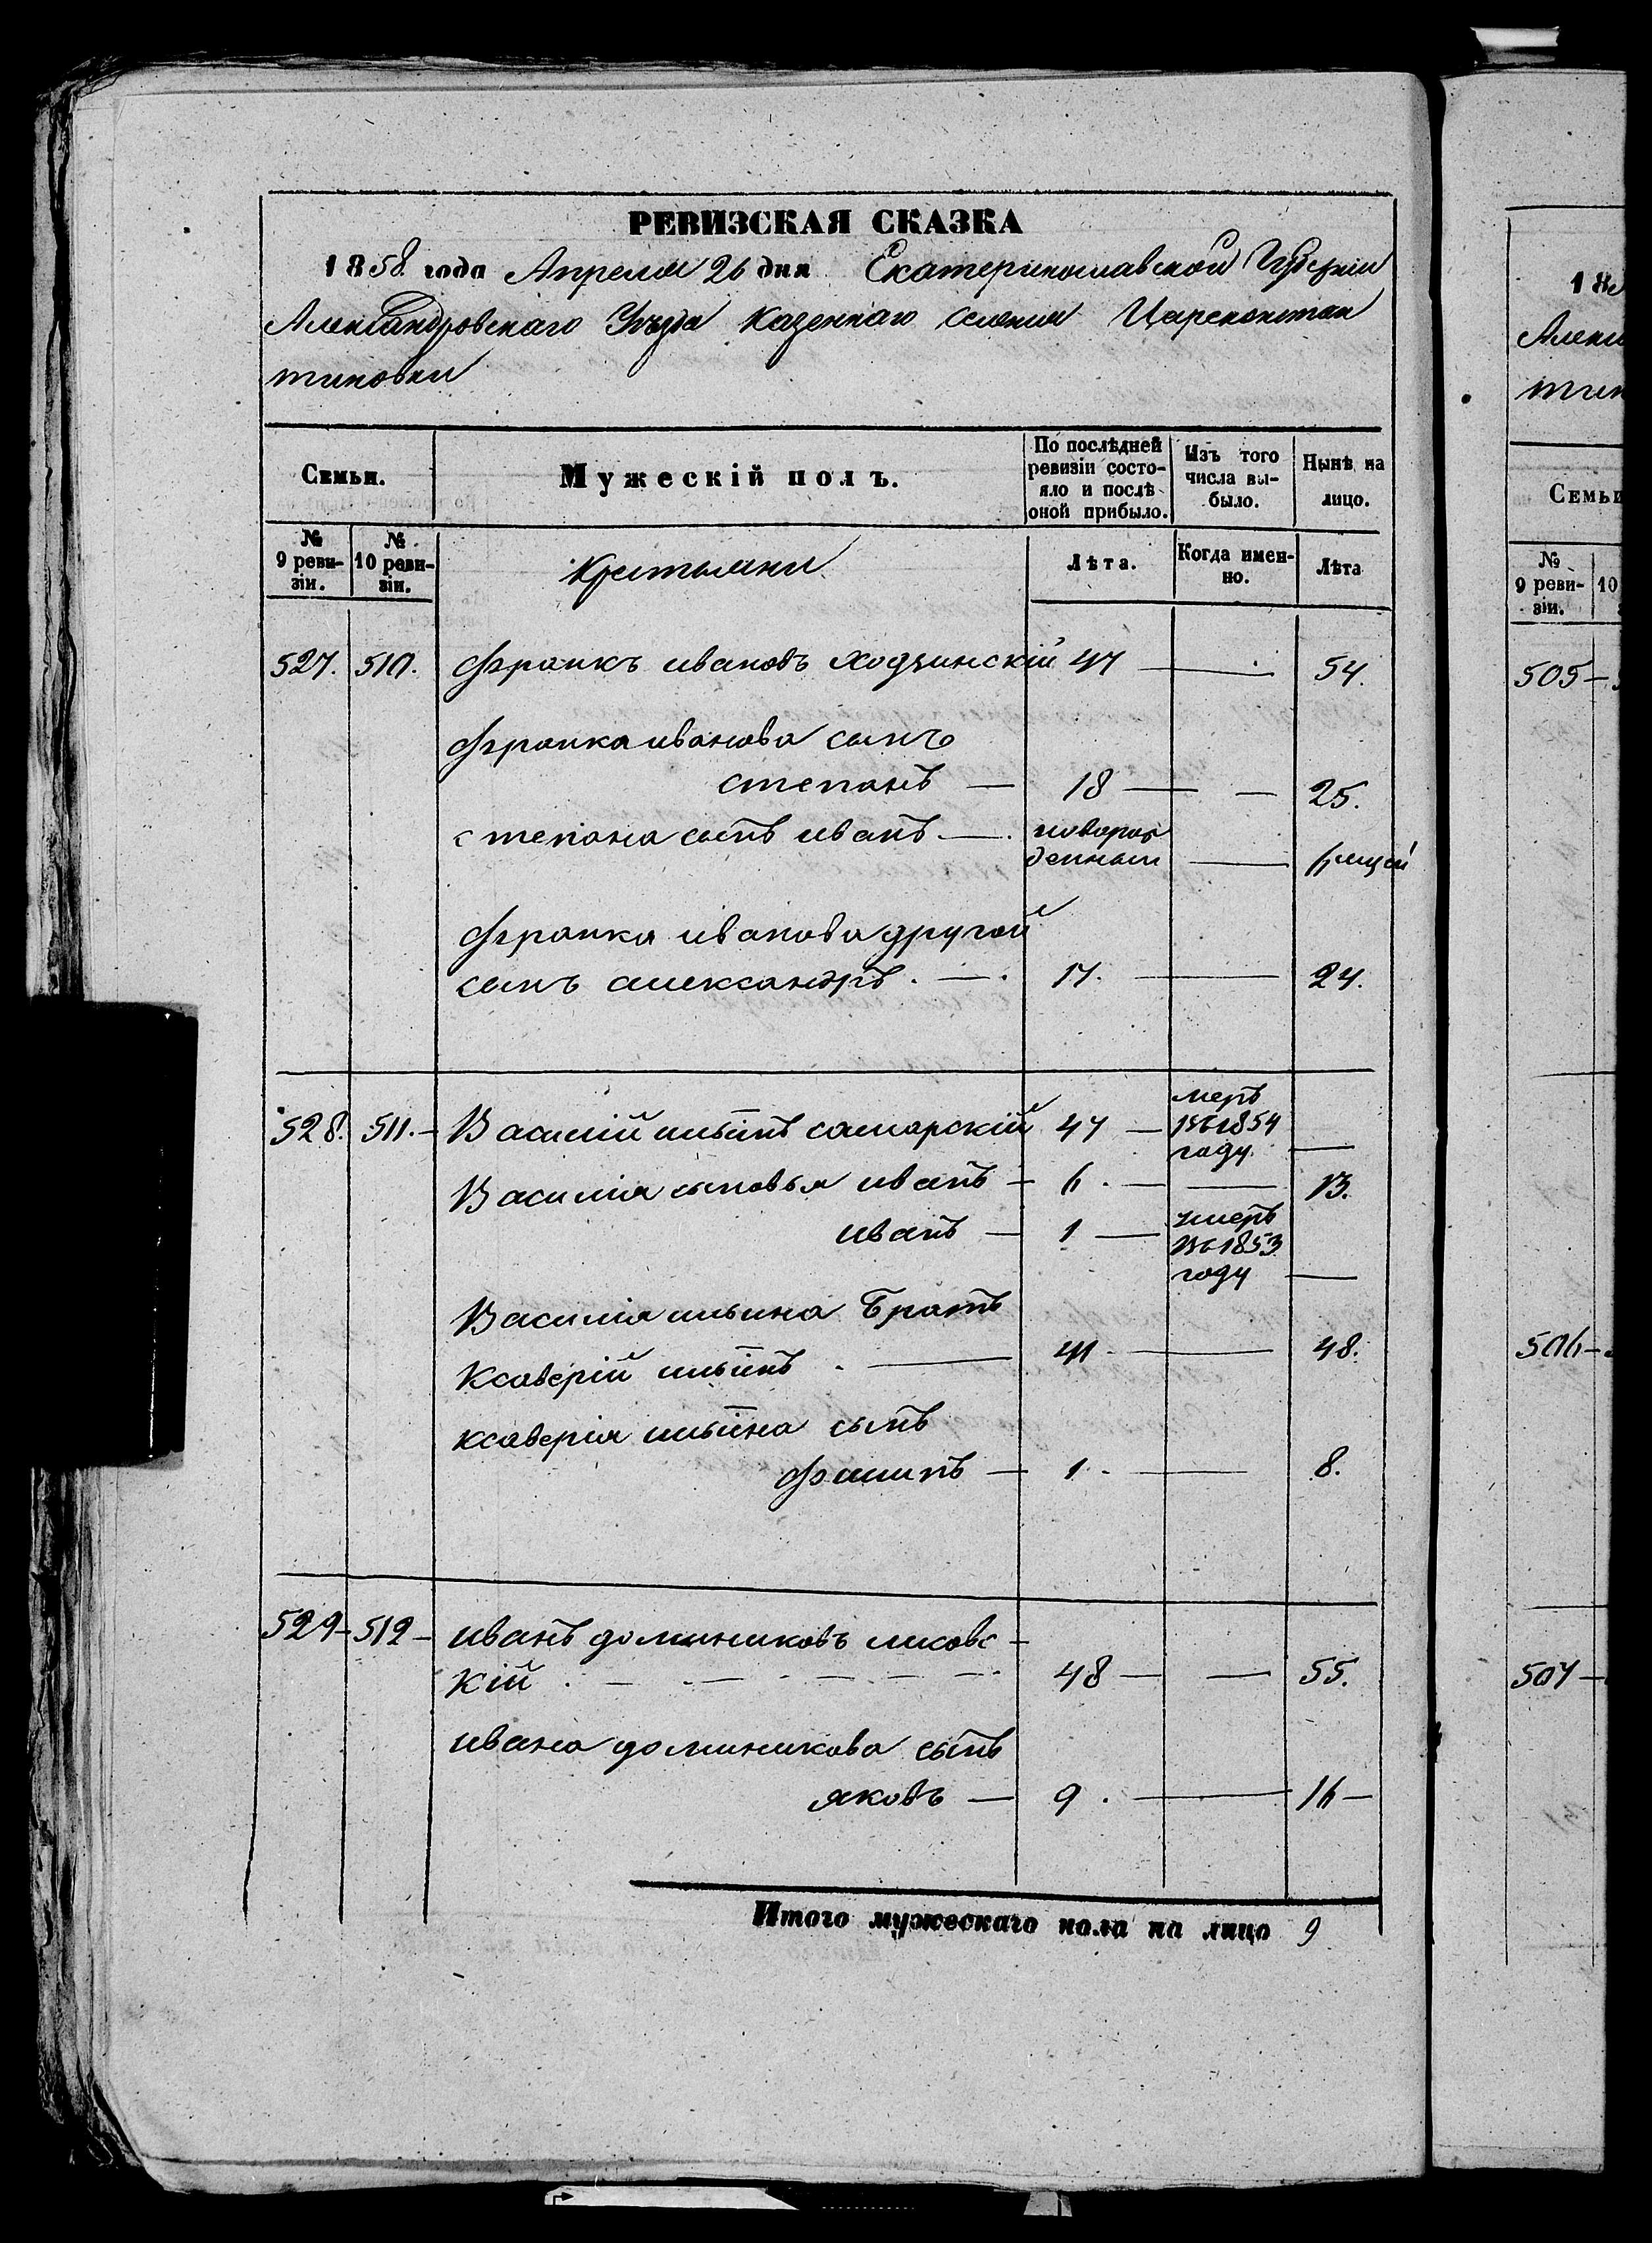 РЕВИЗСКАЯ СКАЗКА
1858 года Апреля 26 дня Екатеринославской Губернии
Александровскаго Уѣзда Казеннаго селения Цареконстан
тиновки
Семьи.
Мужескій полъ.
По послѣдней
ревизіи состо-
яло и послѣ
оной прибыло.
Изъ того
числа вы-
было.
Нынѣ на
лицо.
№
9 реви-
зіи.
№
10 реви-
зіи.
Крестьяне
Лѣта.
Когда имен-
но.
Лѣта
527. 510. Франкъ ивановъ Ходзинскій 47 — 54.
Франка иванова сынъ
степанъ — 18 — — 25.
степана сынъ иванъ —
новорож
денный — 6 мцей
Франка иванова другой
сынъ александръ. — 17. — 24.
528. 511. Василий ильинъ самарскій 47 —
меръ
въ 1854
году —
Василия сыновья иванъ — 6. — 13.
иванъ — 1 —
умеръ
въ 1853
году —
Василия ильина Братъ
Ксаверій ильинъ. — 41. — 48.
ксаверия ильина сынъ
— 1. — 8.
529 — 512 — иванъ доминиковъ
кій. — 48 — — 55.
ивана доминикова сынъ
яковъ — 9. — 16 —
Итого мужескаго пола на лицо 9
185
Алекс
тин
Семьи
№
9 реви-
зіи.
10
505 —
506 —
507 —